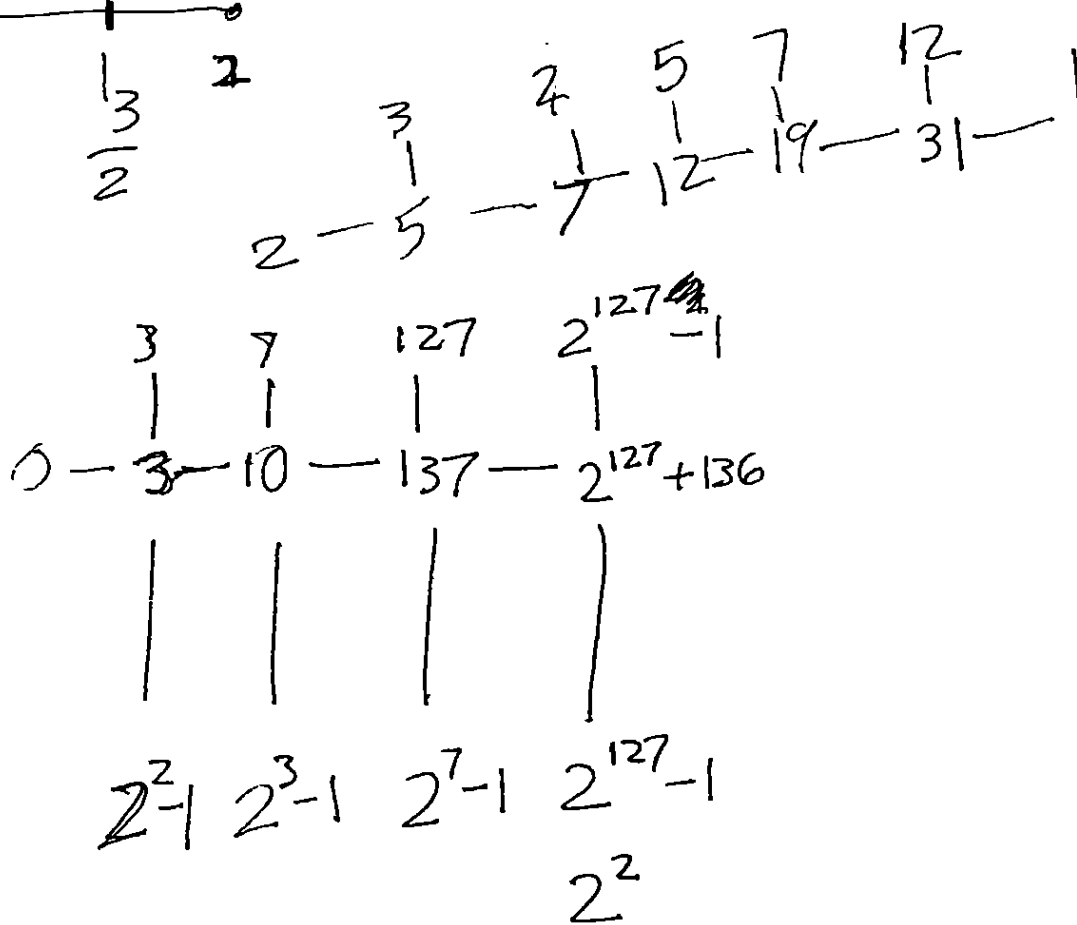 3/2 2
3 2 5 7 12 1
2 — 5 — 7 — 12 — 19 — 31 —
3 7 127 2^127 -1
0 — 3 — 10 — 137 — 2^127 + 136
2^2 -1 2^3 -1 2^7 -1 2^127 -1
2^2